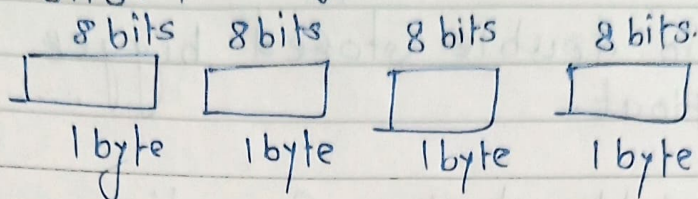 8 bits 8 bits 8 bits 8 bits.
1 byte 1 byte 1 byte 1 byte